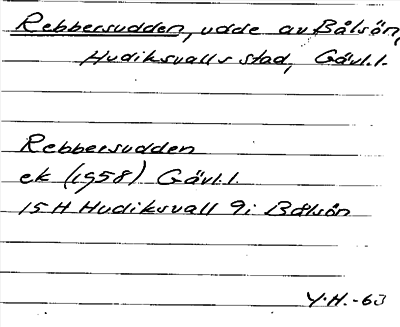 Rebbersudden, udde av Bålsön,
Hudiksvalls stad, Gävl.l.
Rebbersudden
ek (1958) Gävl.l.
15 H Hudiksvall 9i Bålsön
Y.H.-63